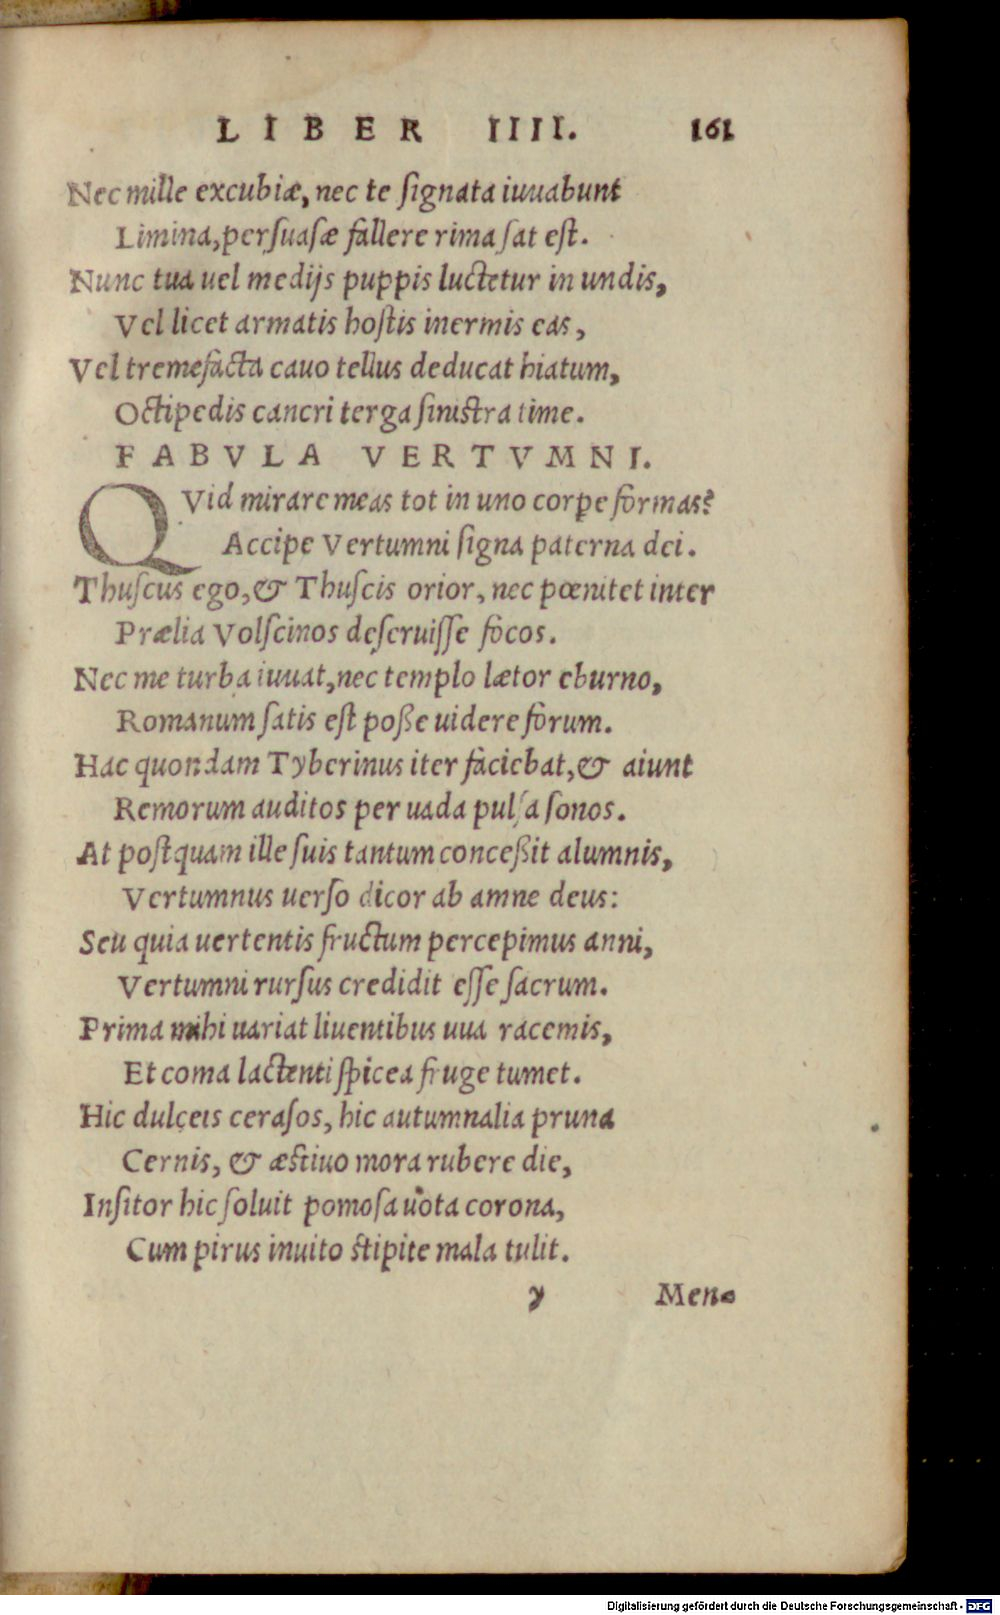 LIBER IIII. 161
Nec mille excubiæ, nec te ſignata iuuabunt
Limina, perſuaſæ fallere rima ſat eſt.
Nunc tua uel medijs puppis luctetur in undis,
Vel licet armatis hoſtis inermis eas,
Vel tremefacta cauo tellus deducat hiatum,
Octipedis cancri terga ſiniſtra time.
FABVLA VERTVMNI.
QVid mirare meas tot in uno corꝑe formas?
Accipe Vertumni ſigna paterna dei.
Thuſcus ego, & Thuſcis orior, nec pœnitet inter
Prælia Volſcinos deſeruiſſe focos.
Nec me turba iuuat, nec templo lætor eburno,
Romanum ſatis eſt poße uidere forum.
Hac quondam Tyberinus iter faciebat, & aiunt
Remorum auditos per uada pulſa ſonos.
At poſtquam ille ſuis tantum conceßit alumnis,
Vertumnus uerſo dicor ab amne deus:
Seu quia uertentis fructum percepimus anni,
Vertumni rurſus credidit eſſe ſacrum.
Prima mihi uariat liuentibus uua racemis,
Et coma lactenti ſpicea fruge tumet.
Hic dulceis ceraſos, hic autumnalia pruna
Cernis, & æſtiuo mora rubere die,
Inſitor hic ſoluit pomoſa uota corona,
Cum pirus inuito ſtipite mala tulit.
y Men-
Digitalisierung gefördert durch die Deutsche Forschungsgemeinschaft - DFG